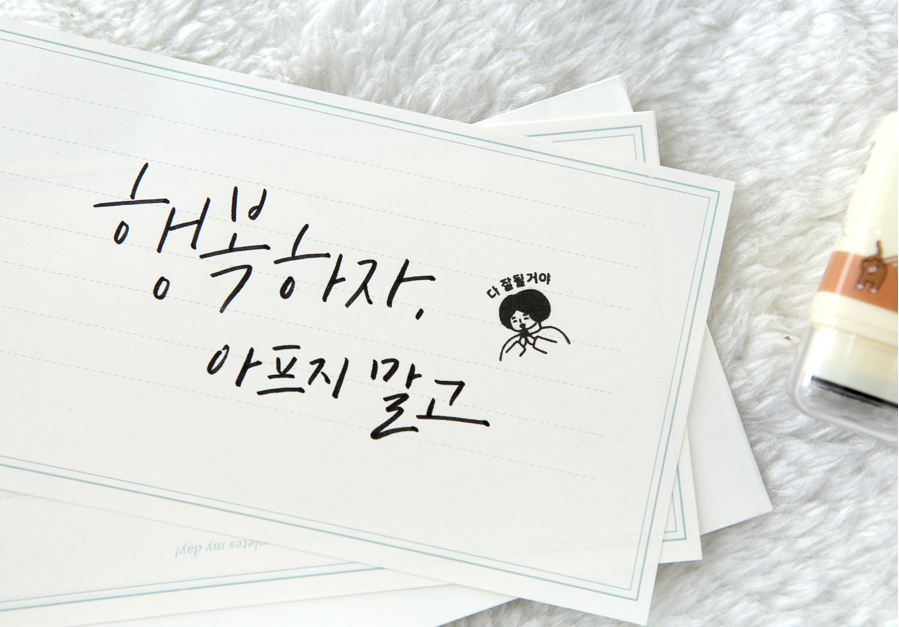 행복하자,
아프지 말고
다 잘될거야
my day!